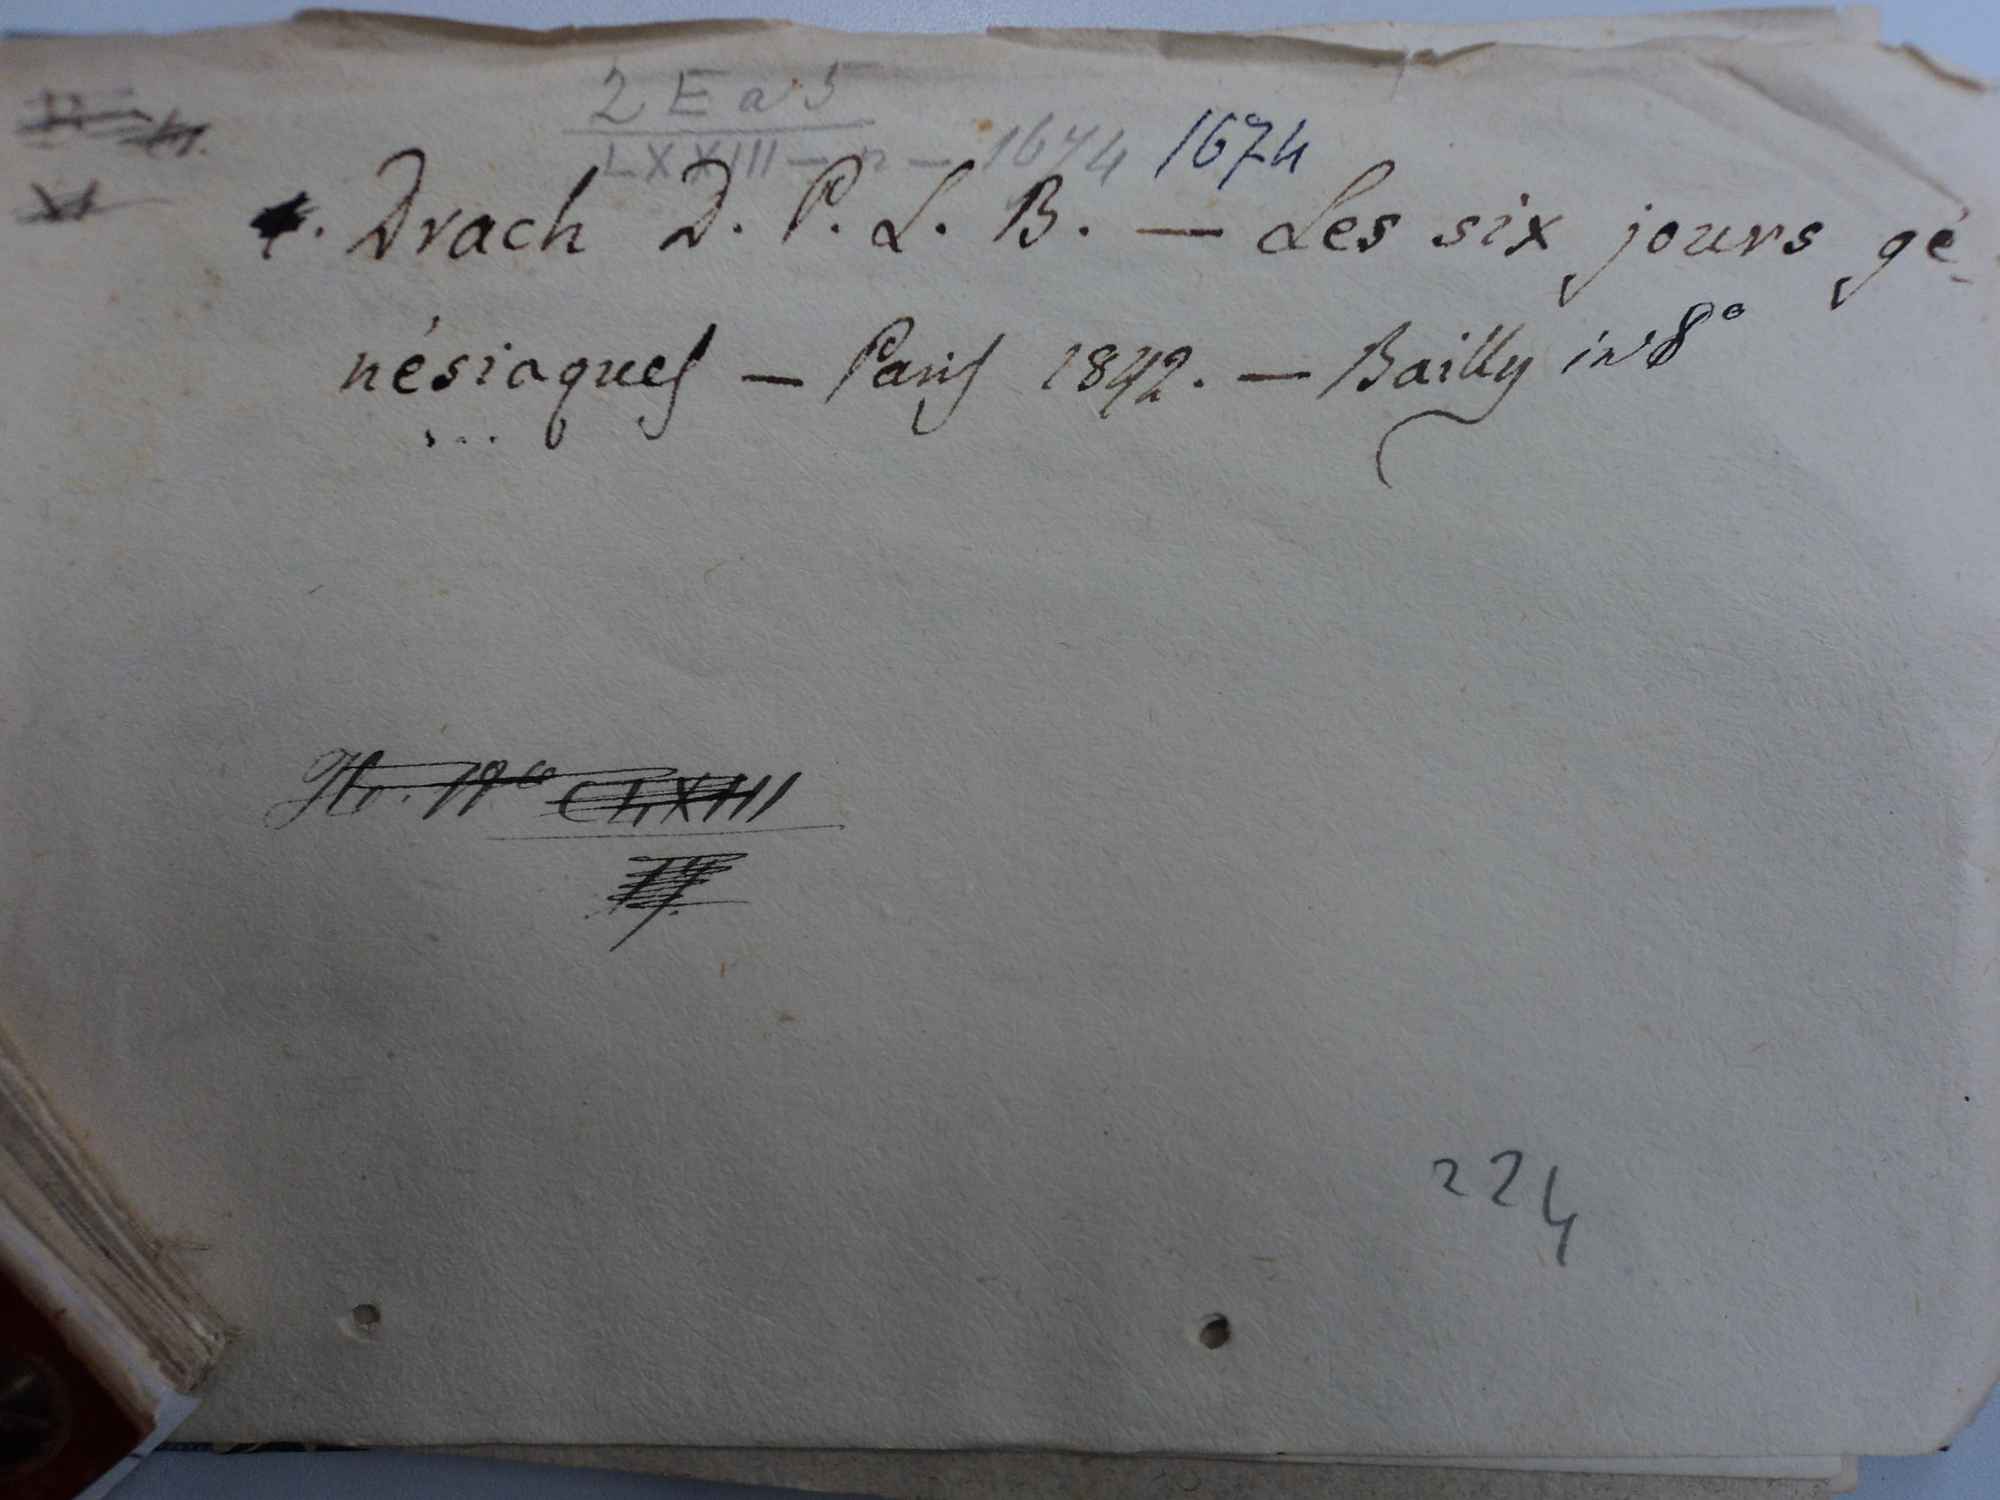 2 E a 5
LXXIII - n - 1674 1674
Drach D. P. L. B. — Les six jours gé-
nésiaques — Paris 1842. — Bailly in 8°
CLXXIII
224